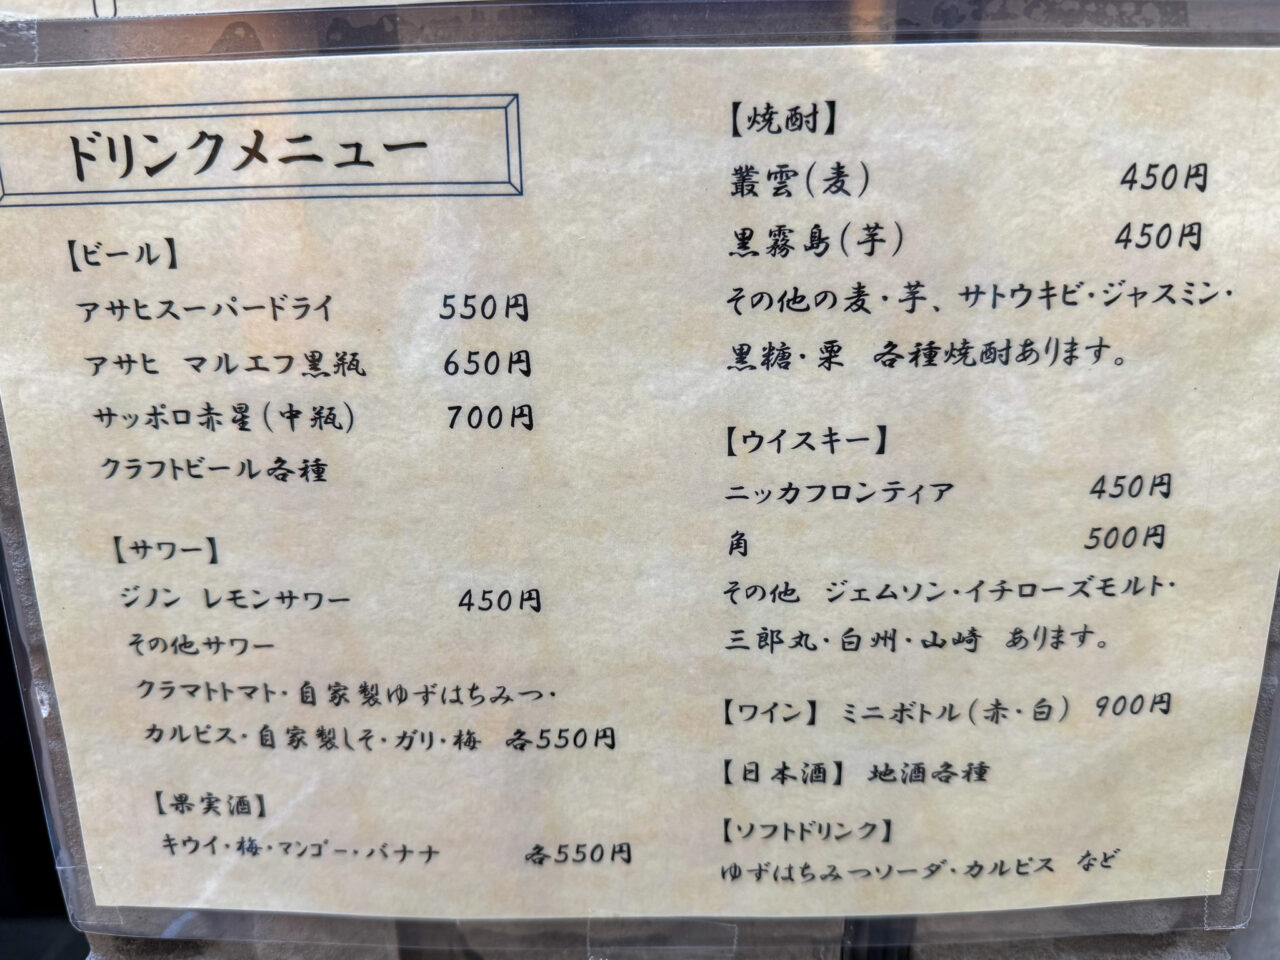 ドリンクメニュー
【ビール】
アサヒスーパードライ 550円
アサヒ マルエフ黒瓶 650円
サッポロ赤星(中瓶) 700円
クラフトビール各種
【サワー】
ジノン レモンサワー 450円
その他サワー
クラマトトマト・自家製ゆずはちみつ・
カルピス・自家製しそ・ガリ・梅 各550円
【果実酒】
キウイ・梅・マンゴー・バナナ 各550円
【焼酎】
叢雲(麦) 450円
黒霧島(芋) 450円
その他の麦・芋、サトウキビ・ジャスミン・
黒糖・栗 各種焼酎あります。
【ウイスキー】
ニッカフロンティア 450円
角 500円
その他 ジェムソン・イチローズモルト・
三郎丸・白州・山崎 あります。
【ワイン】 ミニボトル(赤・白) 900円
【日本酒】 地酒各種
【ソフトドリンク】
ゆずはちみつソーダ・カルピス など